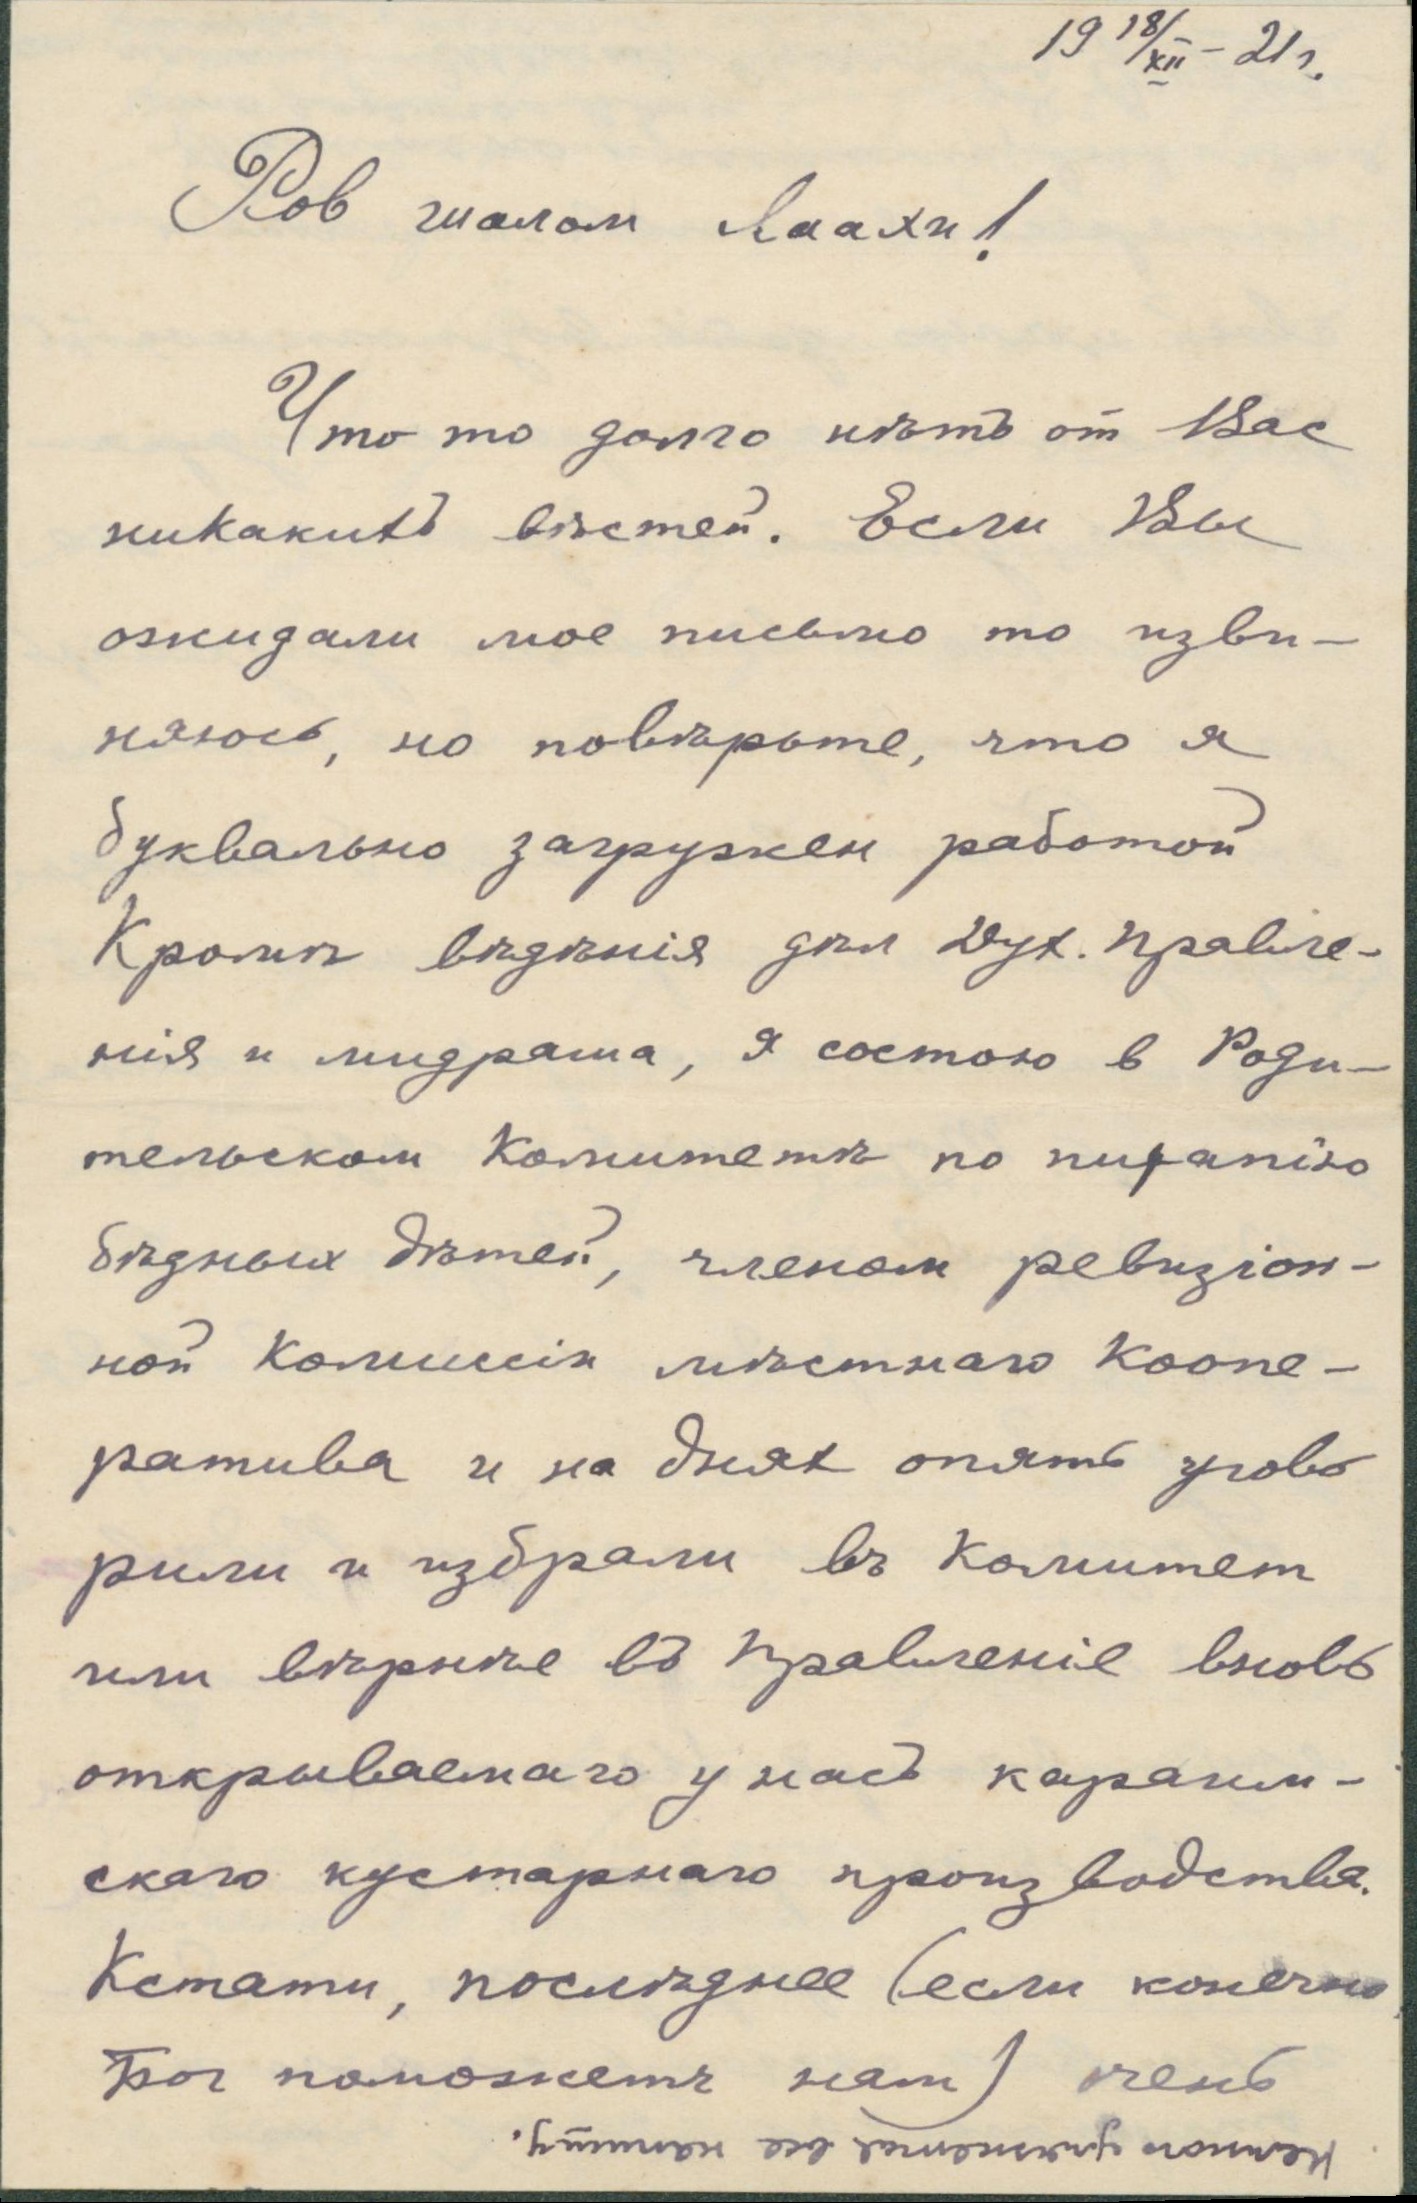 19 18/XII – 21 г.
Ров шалом Лаахи!
Что то долго нѣтъ от Вас
никакихъ вѣстей. Если Вы
ожидали мое письмо то изви–
няюсь, но повѣрьте, что я
буквально загружен работой
Кромѣ вѣдѣнія дѣл Дух. Правле–
нія и мидраша, я состою в Роди–
тельском Комитетѣ по питанію
бѣдных дѣтей, членом ревизіон–
ной Комиссіи мѣстнаго Коопе–
ратива и на днях опять угово
рили и избрали въ Комитет
или вѣрнѣе въ Правленіе вновь
открываемаго у насъ караим–
скаго кустарнаго производства.
Кстати, послѣднее (если конечно
Бог поможетъ нам) очень
все напишу.